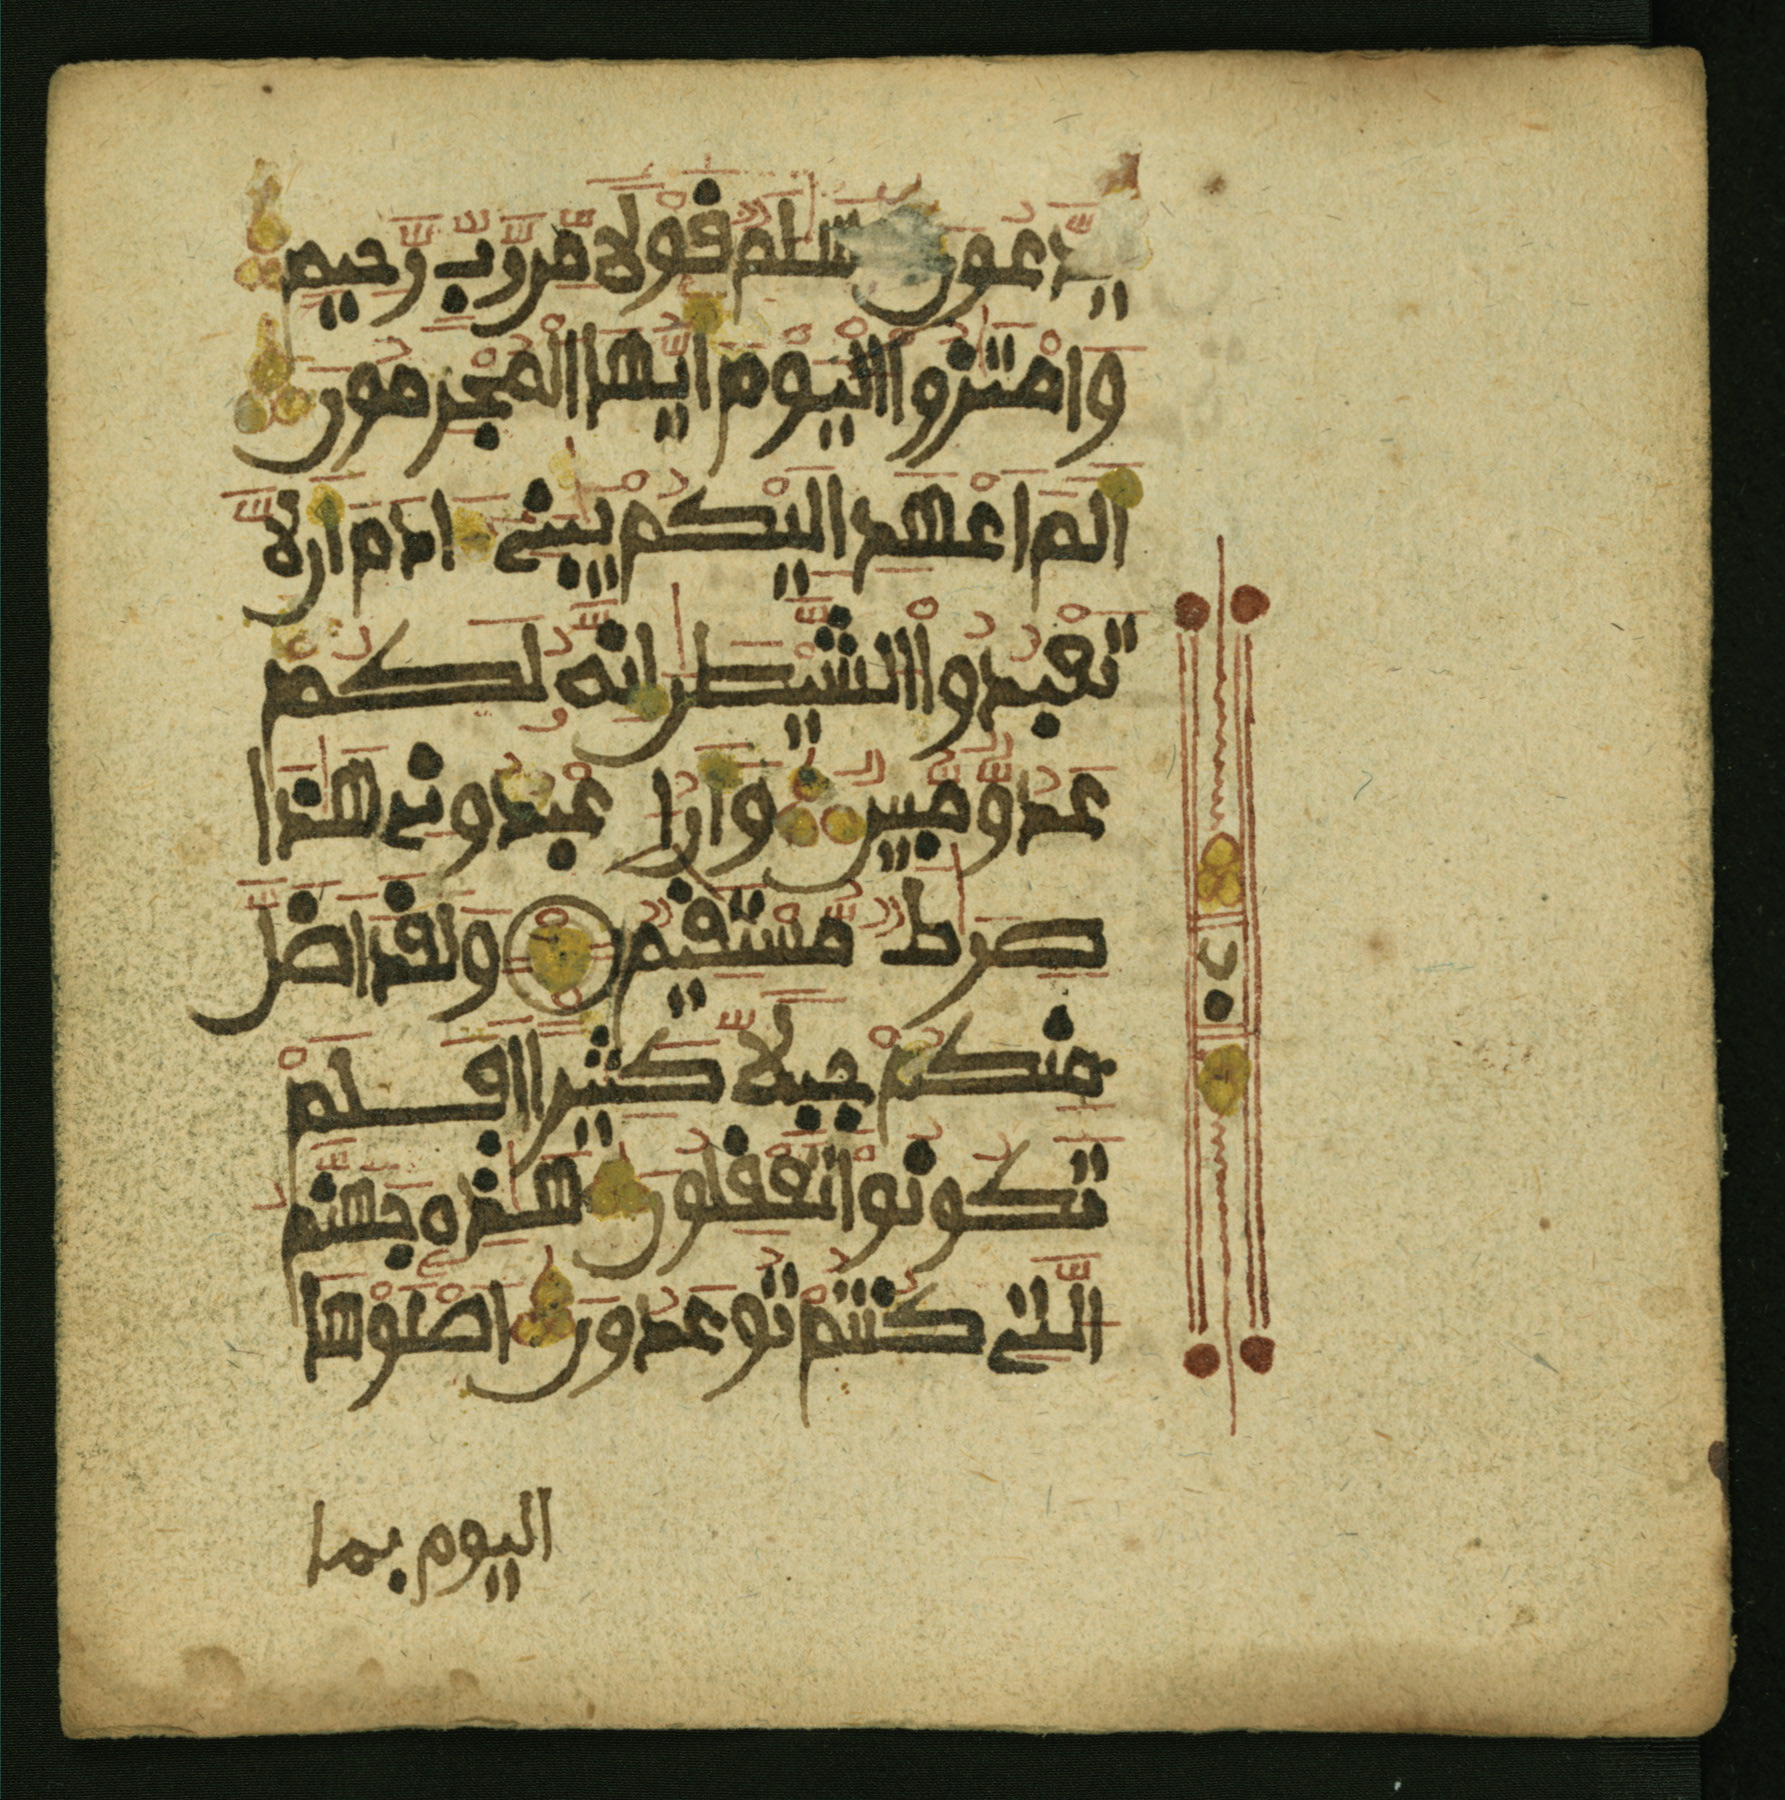 يدعون سلم قولا من رب رحيم
وامتزوا اليوم ايها المجرمون
الم اعهد اليكم يبني ادم ان لا
تعبدوا الشيطن انه لكم
عدو مبين وان ا عبدوني هذا
صرط مستقيم ولقد اضل
منكم جبلا كثيرا افلم
تكونوا تعقلون هذه جهنم
التي كنتم توعدون اصلوها
اليوم بما